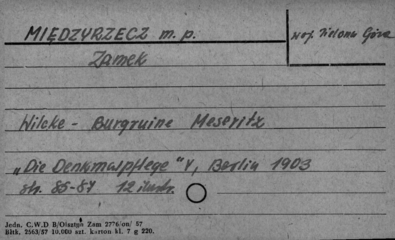 MIĘDZYRZECZ m. p.
woj. Zielona Góra
Zamek
Wilcke - Burgruine Meseritz
„Die Denkmalpflege" V, Berlin 1903
str. 85-87 12 ilustr.
Jedn. C.W.D B/Olsztyn Zam 2776/on/ 57
Bltk. 2563/57 10.000 szt. karton kl. 7 g 220.